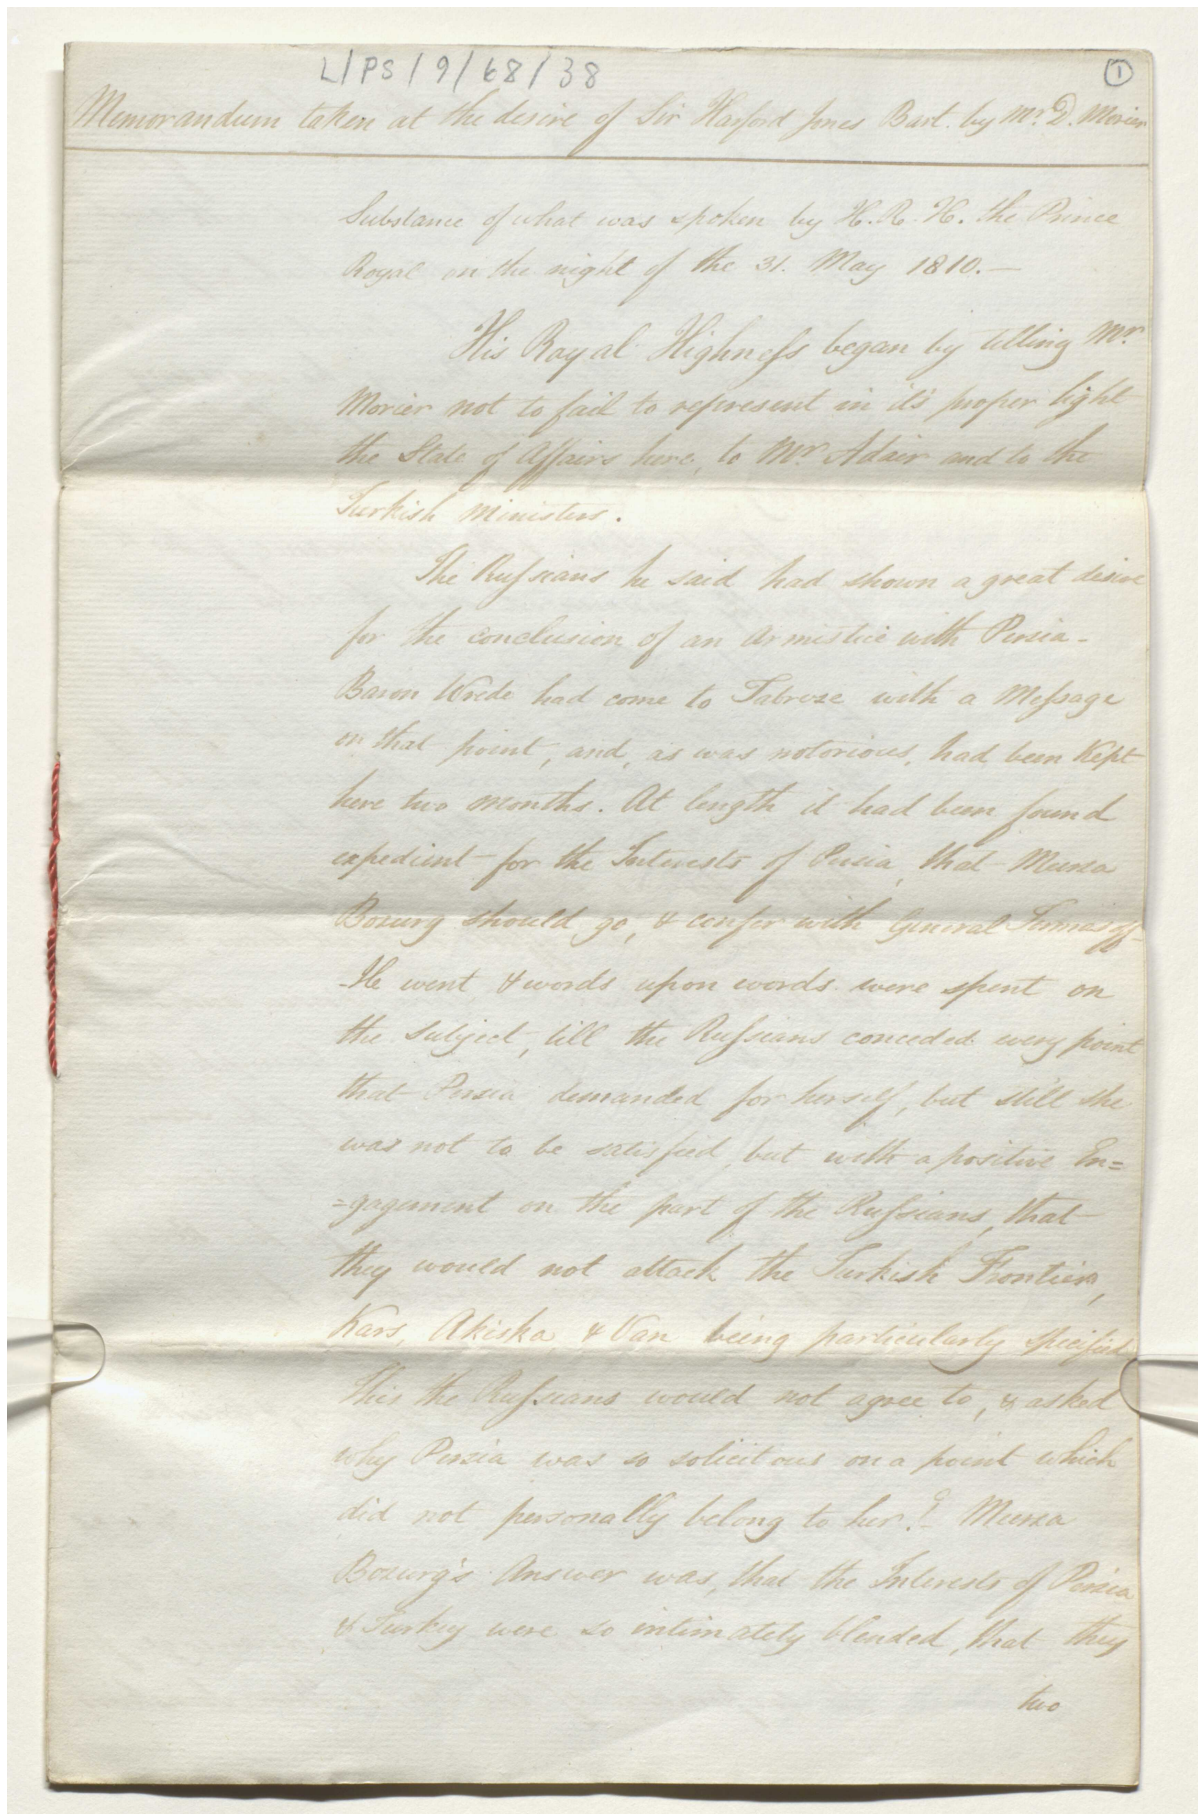 L/PS/9/68/38
1
Memorandum taken at the desire of Sir Harford Jones Bart. by Mr. D. Morier
Substance of what was spoken by H.R.H. the Prince
Royal on the night of the 31. May 1810.—
His Royal Highness began by telling Mr.
Morier not to fail to represent in it's proper light
the State of Affairs here, to Mr. Adair and to the
Turkish Ministers.
The Russians he said had shown a great desire
for the conclusion of an Armistice with Persia -
Baron Wrede had come to Tabreze with a Message
on that point, and, as was notorious, had been Kept
here two months. At length it had been found
expedient for the Interests of Persia, that Meerza
Bozurg should go, & confer with General Tormasoff-
He went & words upon words were spent on
the Subject, till the Russians conceded every point
that Persia demanded for herself, but still she
was not to be satisfied, but with a positive En=
=gagement on the part of the Russians, that
they would not attack the Turkish Frontiers,
Kars, Akiska, & Van being particularly specified
This the Russians would not agree to, & asked
why Persia was so solicitous on a point which
did not personally belong to her? - Meerza
Bozurg's Answer was, that the Interests of Persia
& Turkey were so intimately blended, that they
two